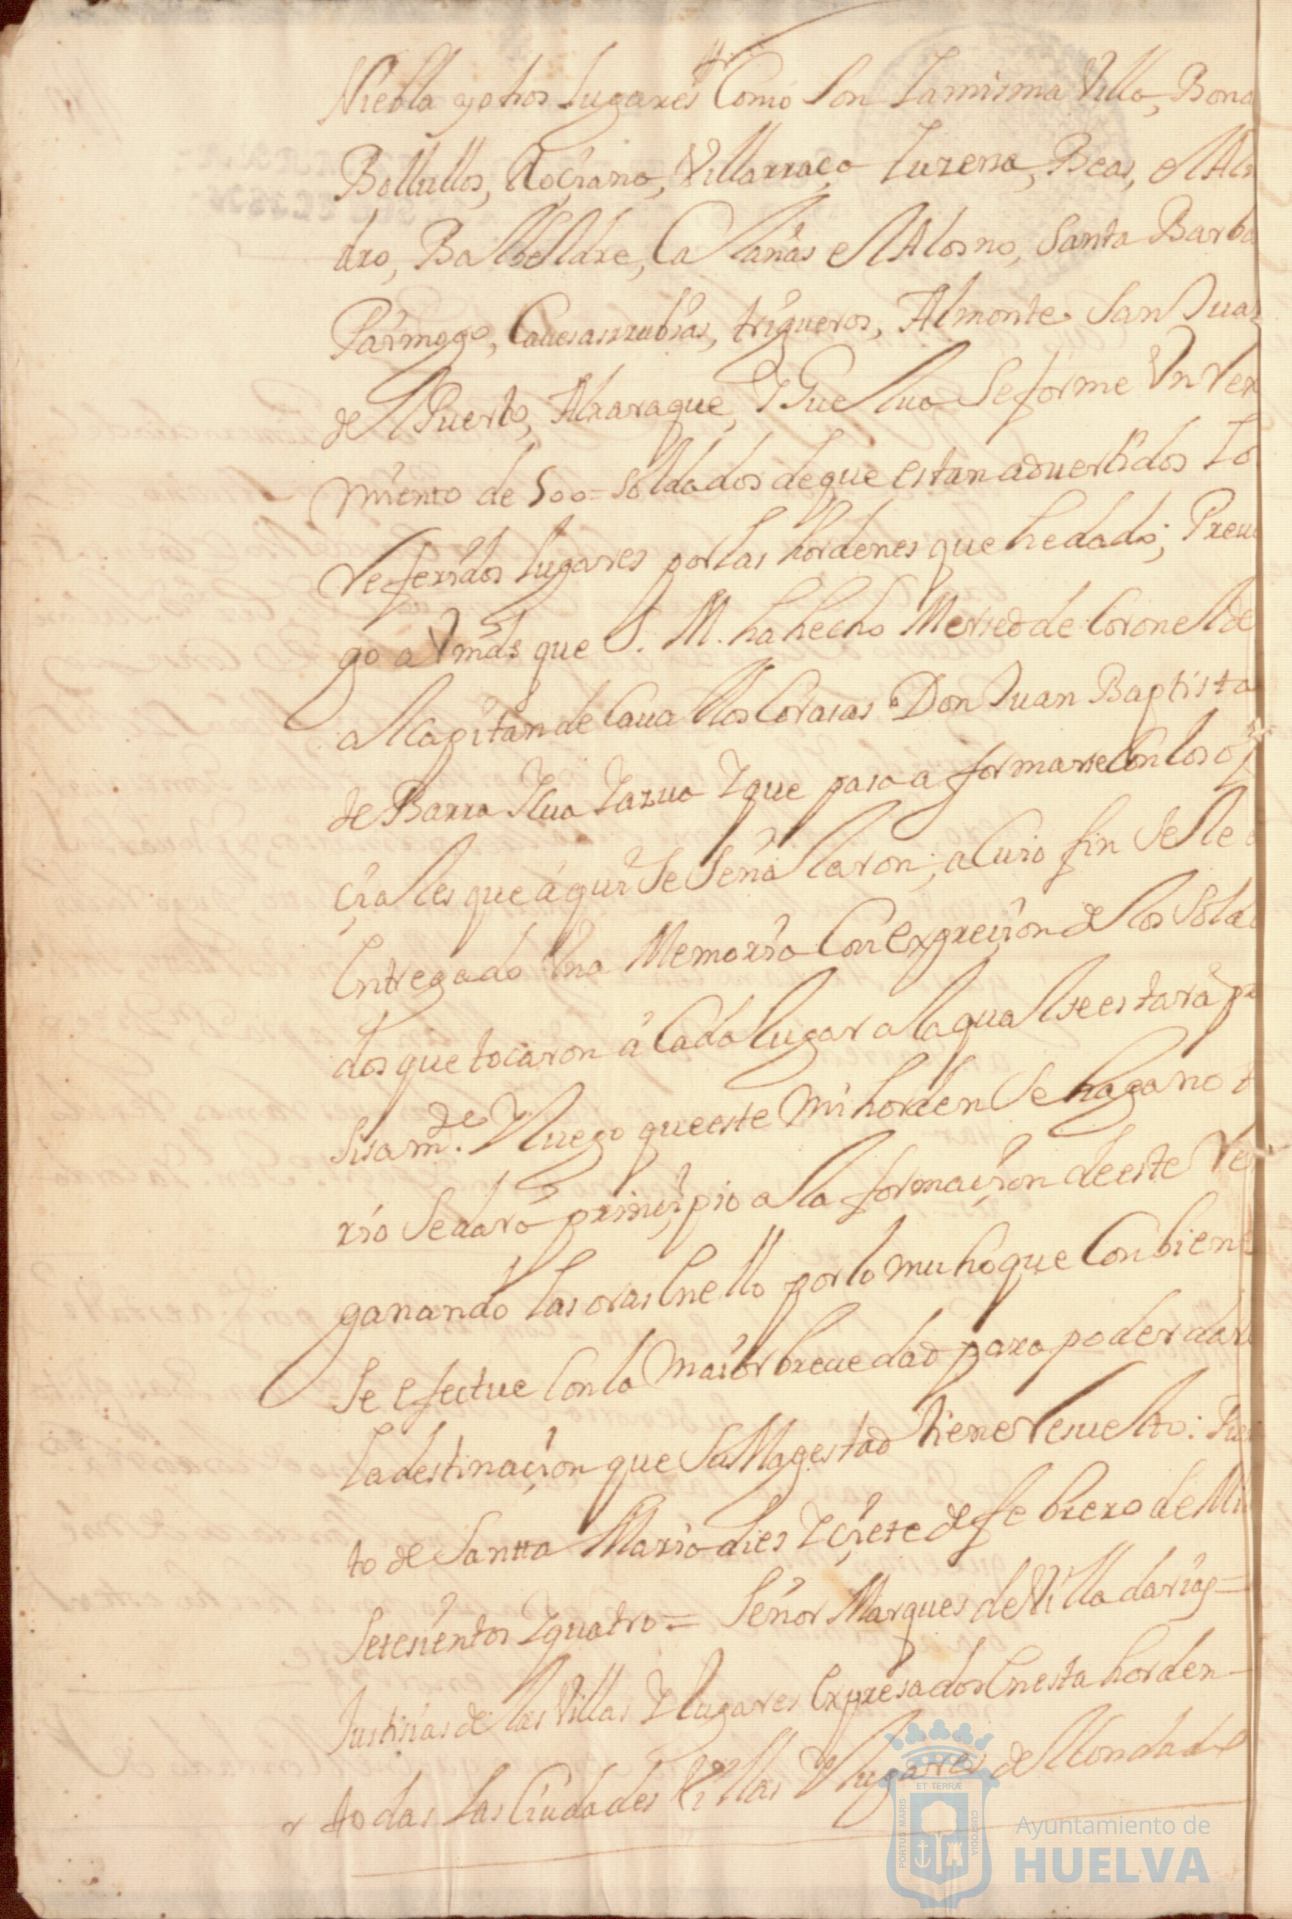 Niebla y otros lugares Como Son La misma Villa, Bona
Bollullos, Rociana, Villarraça Luzena, Beas, el Al
dro, Balbeldre, Calañas el Alosno, Santa Barba
Paimogo, Cauesasrrubias, trigueros, Almonte San Jua
del Puerto, Alxaraque, Y Guelua Se forme Vn Re
miento de 500= Soldados de que estan aduertidos Lo
referidos lugares por las hordenes que he dado; Preu
go a Vmds que S. M. ha hecho Merced de Coronel de
al Capitan de Cauallos Corasas Don Juan Baptista
de Barra Y que pasa a formarse Con los ofi
çiales que aqui Se Señalaron; a Cuio fin Se le
Entregado Vna Memoria Con Expreçion de los Solda
dos que tocaron a Cada lugar a la qual se estara pre
sisamde. Y luego que este Mi horden Se haga no
rio Se dara prinçipio a la formaçion de este Re
ganando las oras En ello por lo muho que Conbiene
Se efectue Con la Maior breuedad para poder dar
La destinaçion que Su Magestad tiene resuelto: Pue
to de Santta Maria dies Y çiete de febrero de Mil
Setesientos Y quatro = Señor Marques de Villadarias =
Justiçias de las Villas Y lugares Expresados En esta horden -
todas las Ciudades Villas Y lugares del Condado
ET TERRÆ
PORTUS MARIS
CUSTODIA
Ayuntamiento de
HUELVA